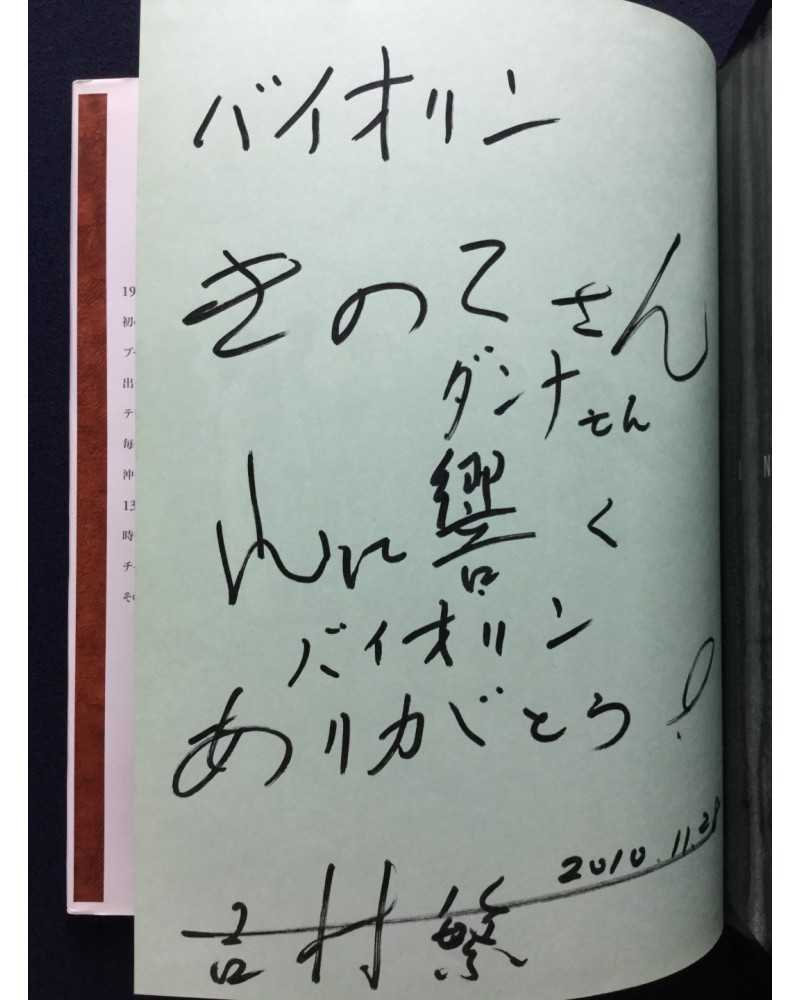 バイオリン
きのこさん
ダンナさん
心に響く
バイオリン
ありがとう！
2010.11.28
吉村繁
19
初
ブ
出
テ
毎
沖
13
時
チ
そ
N